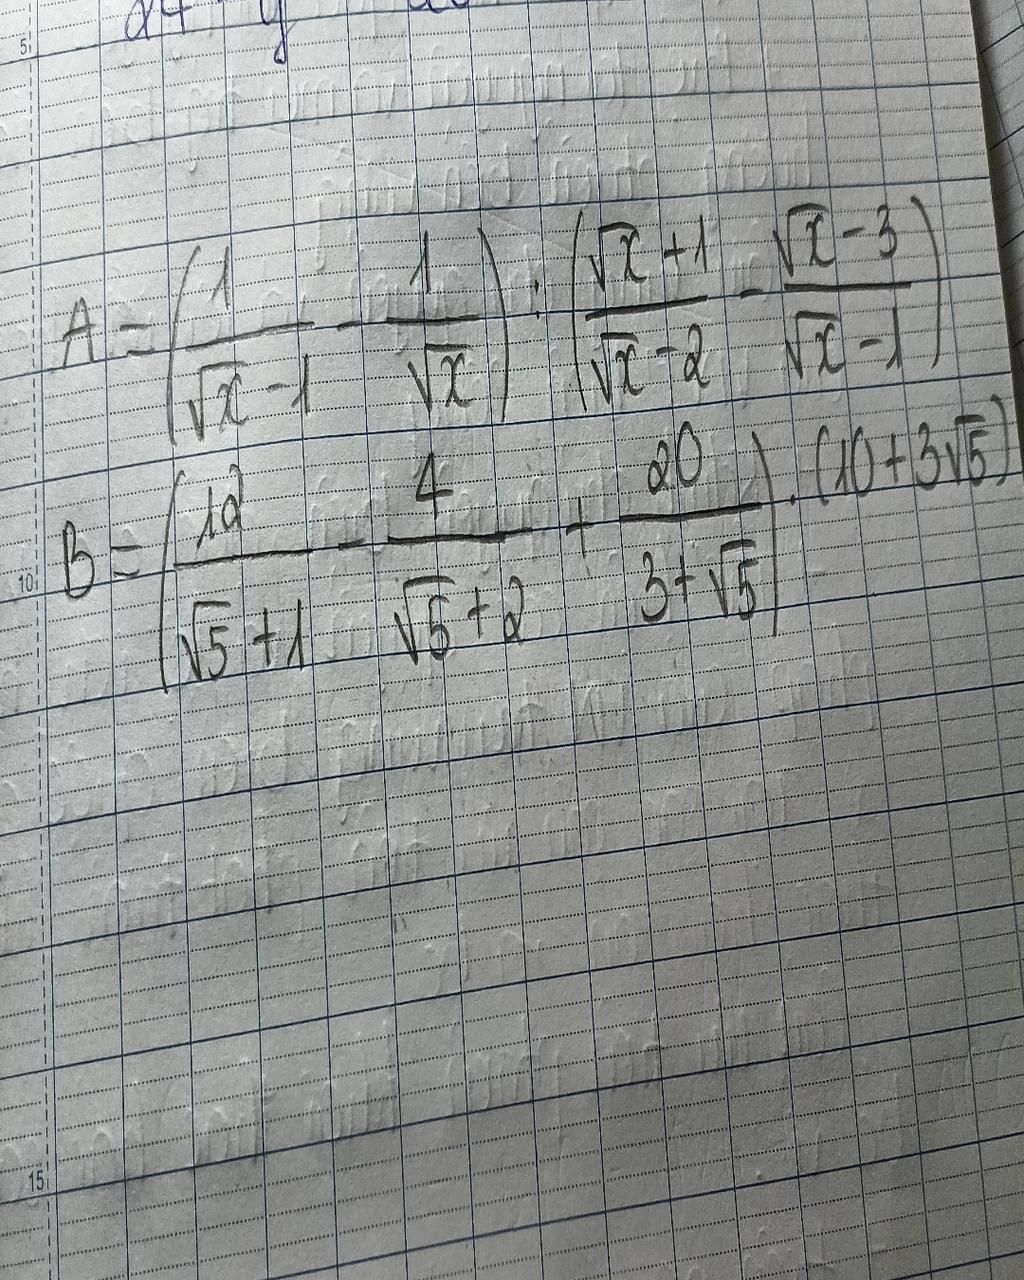 5
A = (1/(√x - 1) - 1/√x) : ((√x + 1)/(√x - 2) - (√x - 3)/(√x - 1))
B = (12/(√5 + 1) - 4/(√5 + 2) + 20/(3 + √5)) . (10 + 3√5)
10
15